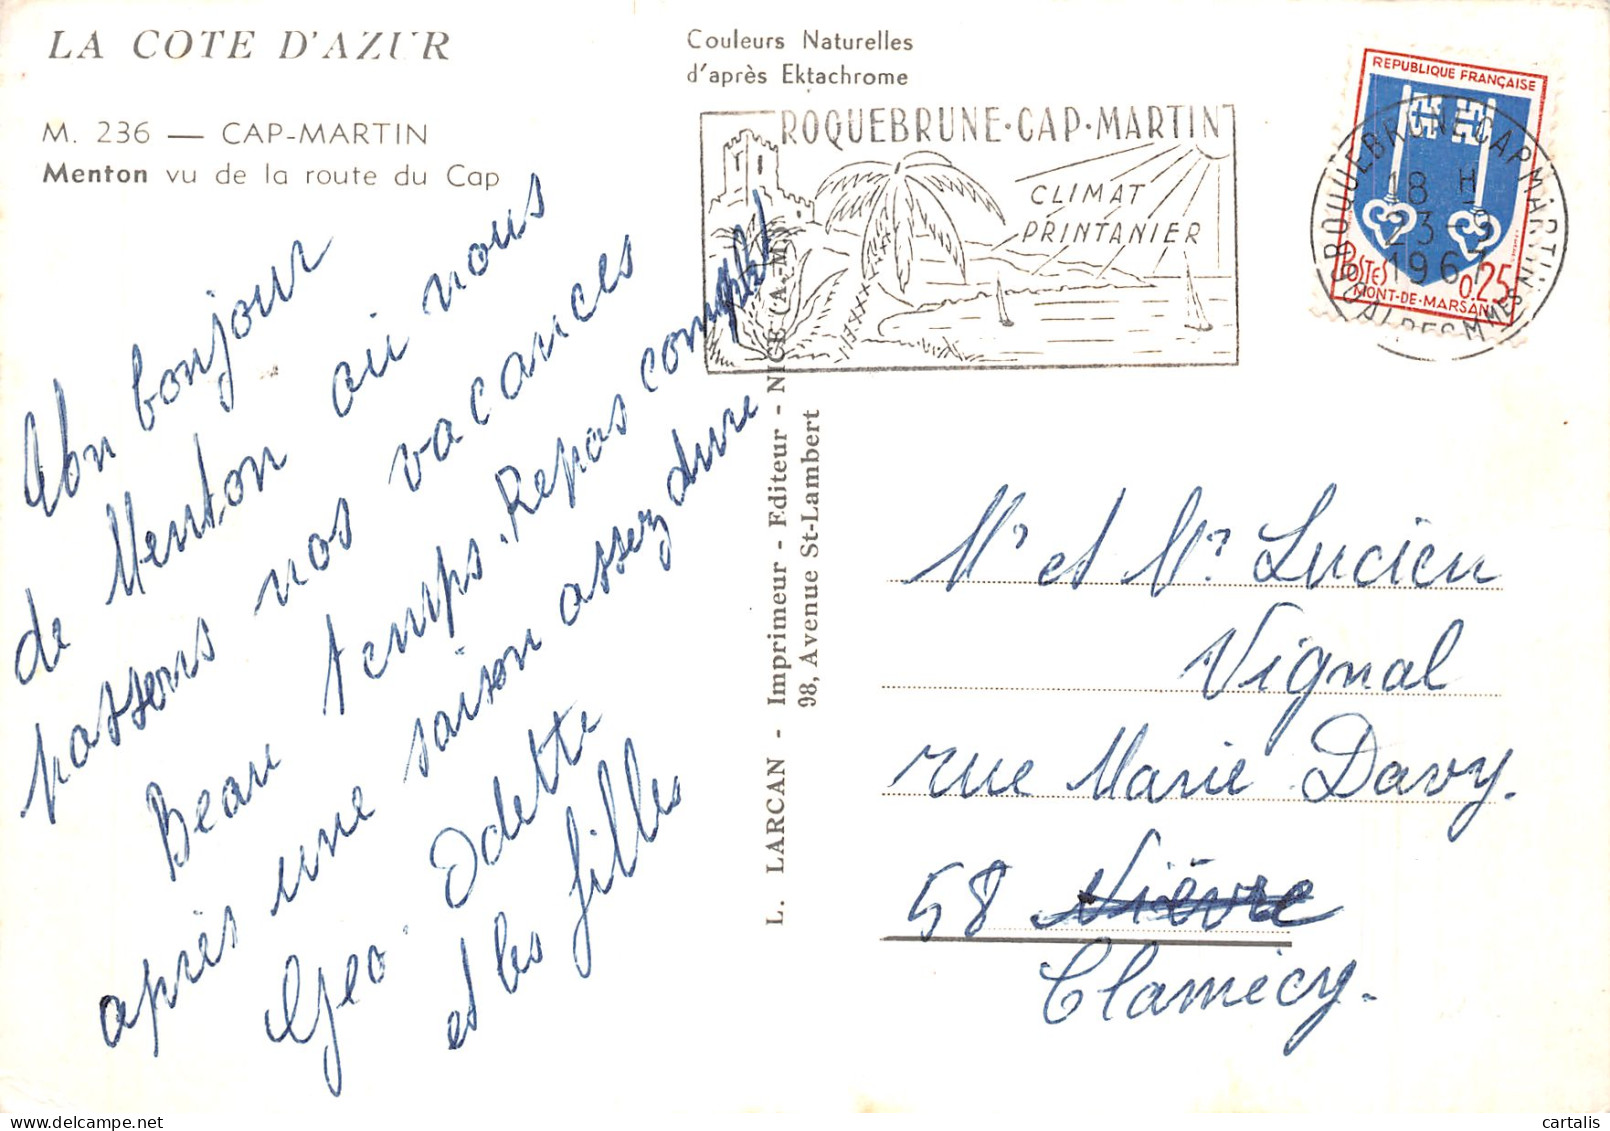 LA COTE D'AZUR
M. 236 — CAP-MARTIN
Menton vu de la route du Cap
Couleurs Naturelles
d'après Ektachrome
ROQUEBRUNE·CAP·MARTIN
CLIMAT
PRINTANIER
REPUBLIQUE FRANÇAISE
POSTES
0,25
MONT-DE-MARSAN
ROQUEBRUNE CAP MARTIN
18 H
23-9
1967
Un bonjour
de Menton où nous
passons nos vacances
Beau temps. Repos complet
après une saison assez dure
Geo Odette
et les filles
L. LARCAN - Imprimeur - Editeur - NICE (A.-M.).
98, Avenue St-Lambert
Mr et Mr. Lucien
Vignal
rue Marie Davy.
58 Nièvre
Clamecy.
cartalis